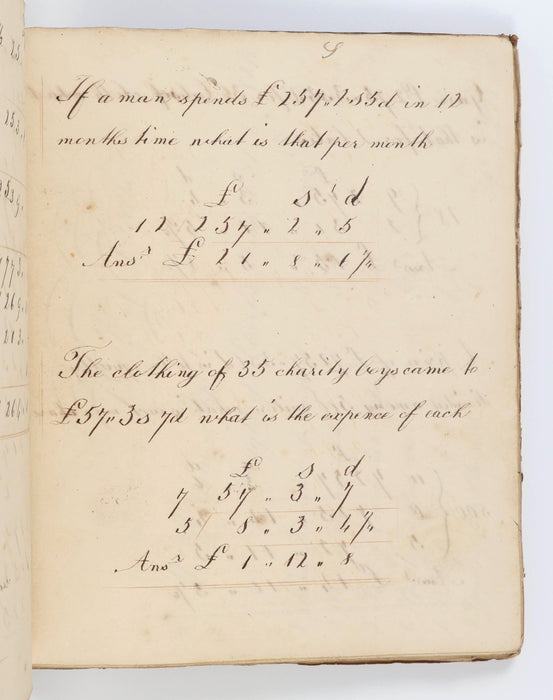 If a man spends £ 257 " 2 s 5 d in 12
months time what is that per month
£ s d
12 257 " 2 " 5
Ansʳ £ 21 " 8 "
The clothing of 35 charity boys came to
£57 " 3 s 7d what is the expence of each
£ s d
7 57 " 3 " 7
5 8 " 3 " 4¼
Ansʳ £ 1 " 12 " 8